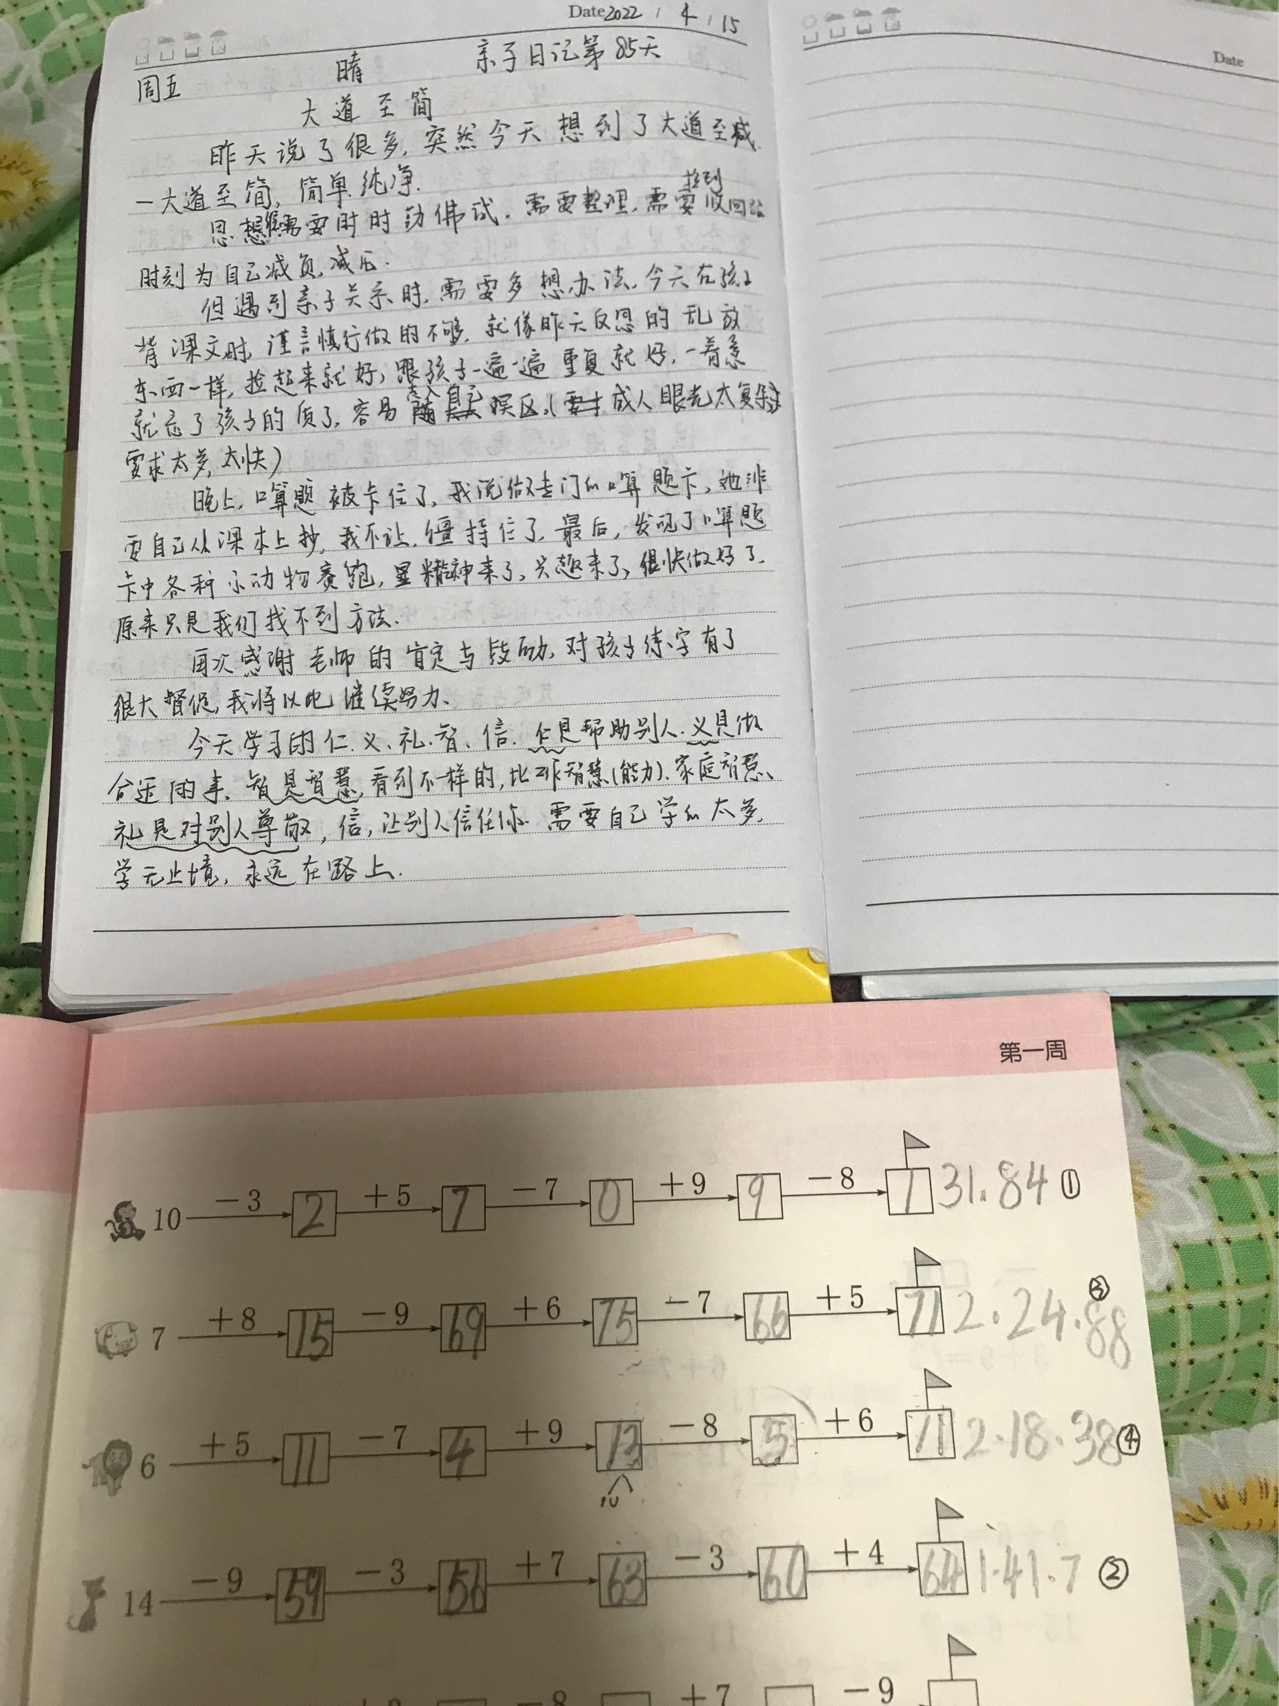 Date 2022 / 4 / 15
周五 晴 亲子日记第85天
大道至简
昨天说了很多,突然今天想到了大道至减.
一大道至简,简单.纯净.
捡到
思想需要时时勤佛试.需要整理,需要收回
时刻为自己减负,减压.
但遇到亲子关系时,需要多想办法,今天在孩子
背课文时,谨言慎行做的不够,就像昨天反思的乱放
东西一样,捡起来就好,跟孩子一遍一遍重复就好,一着急
就忘了孩子的 了,容易 自己误区,(成人眼光太复杂
要求太多,太快)
晚上,口算题被卡住了,我说做专门的口算题卡,她非
要自己从课本上抄,我不让,僵持住了,最后,发现了口算题
卡中各种小动物赛跑,显精神来了,兴趣来了,很快做好了.
原来只是我们找不到方法.
再次感谢老师的肯定与鼓励,对孩子练字有了
很大督促,我将以此继续努力、
今天学习的仁.义.礼.智、信.仁是帮助别人.义是做
合适的事、智是智慧,看到不一样的,比 智慧(能力).家庭智慧、
礼是对别人尊敬,信,让别人信任你.需要自己学的太多,
学无止境,永远在路上.
Date
第一周
10 −3 2 +5 7 −7 0 +9 9 −8 1 31.84 ①
7 +8 15 −9 69 +6 75 −7 66 +5 71 2.24.88 ③
6 +5 11 −7 4 +9 13 −8 5 +6 11 2.18.38 ④
10
14 −9 59 −3 56 +7 63 −3 60 +4 64 1.41.7 ②
−8 +7 −9